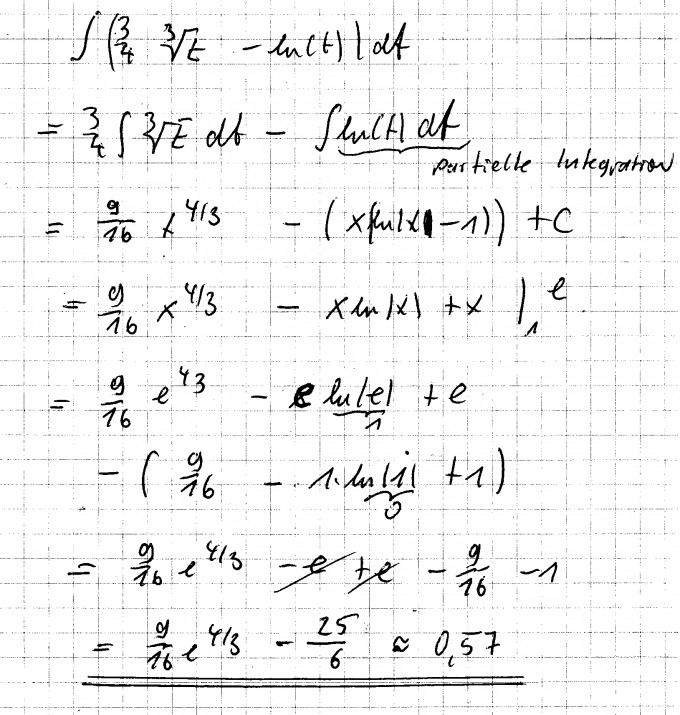 ∫ (3/4 ∛t - ln(t)) dt
= 3/4 ∫ ∛t dt - ∫ ln(t) dt
partielle Integration
= 9/16 x^4/3 - (x(ln|x| - 1)) + C
= 9/16 x^4/3 - x ln|x| + x |₁^e
= 9/16 e^4/3 - e ln|e| + e
1
- (9/16 - 1·ln|1| + 1)
0
= 9/16 e^4/3 - e + e - 9/16 - 1
= 9/16 e^4/3 - 25/6 ≈ 0,57